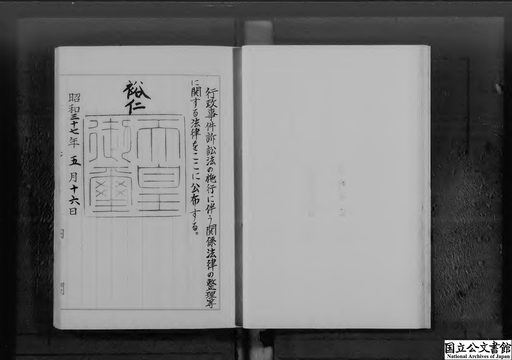 行政事件訴訟法の施行に伴う関係法律の整理等
に関する法律をここに公布する。
裕仁
天皇
御璽
昭和三十七年五月十六日
国立公文書館
National Archives of Japan